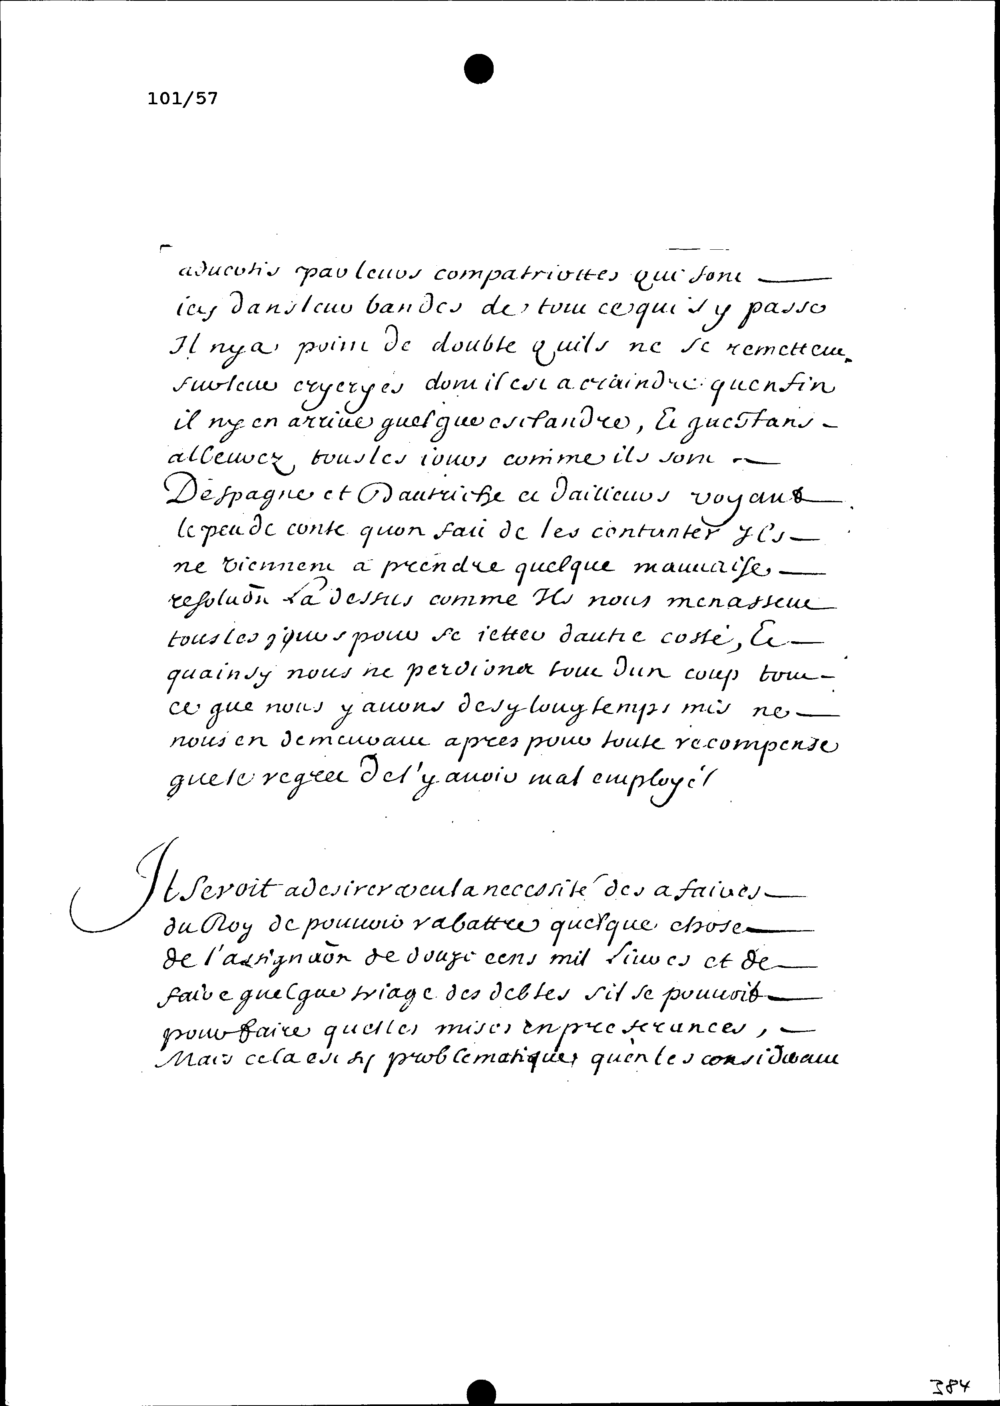 101/57
aduertis par leurs compatriottes qui sont
icy dans leur bandes de tout ce qui s'y passe
Il nya point de doubte quils ne se remettent
sur leur cryeryes dont il est a craindre quen fin
il ny en arriue quelque esclandre, Et questans
alleurez tous les iours comme ils sont
Despagne et Dautriche et dailleurs voyant
le peu de conte quon fait de les contanter Ils
ne viennent a prendre quelque mauuaise
resoluon La dessus comme Ils nous menassent
tous les jours pour se ietter dautre costé, Et
quainsy nous ne perdions tout dun coup tout
ce que nous y auons desy longtemps mis ne
nous en demeurant apres pour toute recompense
que le regret de l'y auoir mal employé
Il seroit a desirer veu la necessité des afaires
du Roy de pouuoir rabattre quelque chose
de l'assignaon de douze cens mil Liures et de
faire quelque triage des debtes sil se pouuoit
pour faire quelles mises en preferances,
Mais cela est sy problematique quen les considerant
384